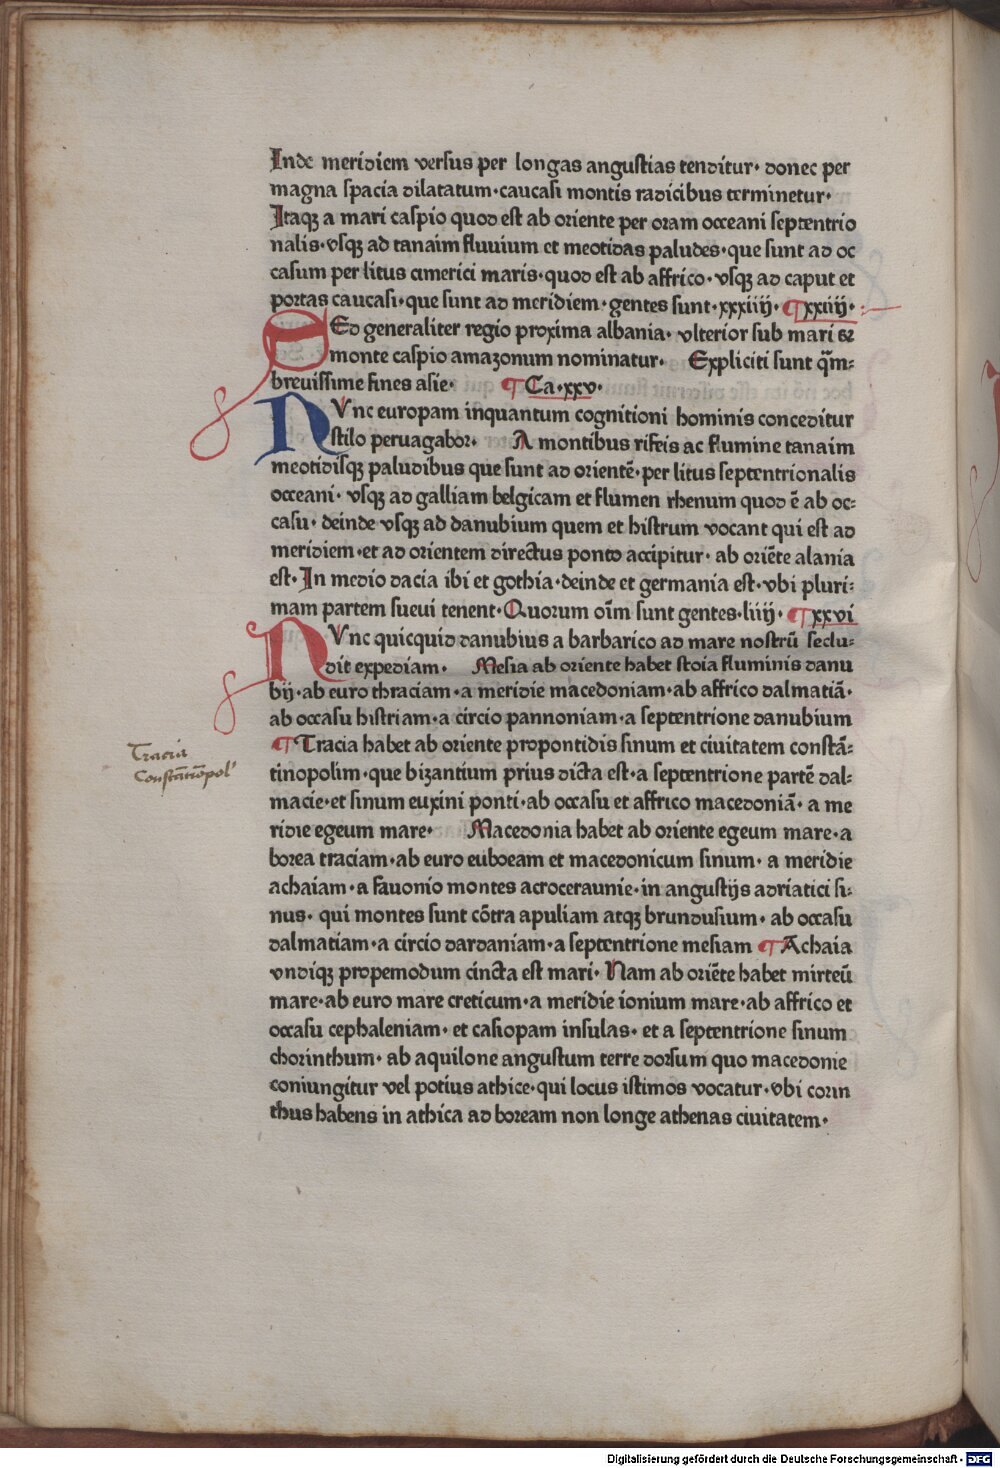 Inde meridiem versus per longas angustias tenditur· donec per
magna spacia dilatatum·caucasi montis radicibus terminetur·
Itaqꝫ a mari caspio quod est ab oriente per oram occeani septentrio
nalis·vsqꝫ ad tanaim fluuium et meotidas paludes·que sunt ad oc
casum per litus cimerici maris·quod est ab affrico·vsqꝫ ad caput et
portas caucasi·que sunt ad meridiem·gentes sunt·xxxiiij· ¶xxiiij·
SEd generaliter regio proxima albania· vlterior sub mari et
monte caspio amazonum nominatur· Expliciti sunt q̃m-
breuissime fines asie· ¶Ca·xxv·
NVnc europam inquantum cognitioni hominis conceditur
stilo peruagabor· A montibus rifeis ac flumine tanaim
meotidisqꝫ paludibus que sunt ad orientē·per litus septentrionalis
occeani· vsqꝫ ad galliam belgicam et flumen rhenum quod ē ab oc-
casu· deinde vsqꝫ ad danubium quem et histrum vocant qui est ad
meridiem·et ad orientem directus ponto accipitur· ab oriēte alania
est·In medio dacia ibi et gothia·deinde et germania est·vbi pluri-
mam partem sueui tenent·Quorum oīm sunt gentes·liiij· ¶xxvi
NVnc quicquid danubius a barbarico ad mare nostrū seclu-
dit expediam· Mesia ab oriente habet stoia fluminis danu
bij·ab euro thraciam·a meridie macedoniam·ab affrico dalmatiā·
ab occasu histriam·a circio pannoniam·a septentrione danubium
¶Tracia habet ab oriente propontidis sinum et ciuitatem constā-
tinopolim·que bizantium prius dicta est·a septentrione partē dal-
macie·et sinum euxini ponti·ab occasu et affrico macedoniā· a me
ridie egeum mare· Macedonia habet ab oriente egeum mare·a
borea traciam·ab euro euboeam et macedonicum sinum· a meridie
achaiam·a fauonio montes acroceraunie·in angustijs adriatici si-
nus· qui montes sunt cōtra apuliam atqꝫ brundusium· ab occasu
dalmatiam·a circio dardaniam·a septentrione mesiam ¶Achaia
vndiqꝫ propemodum cincta est mari· Nam ab oriēte habet mirteū
mare·ab euro mare creticum·a meridie ionium mare·ab affrico et
occasu cephaleniam· et casiopam insulas· et a septentrione sinum
chorinthum· ab aquilone angustum terre dorsum quo macedonie
coniungitur vel potius athice·qui locus istimos vocatur·vbi corin
thus habens in athica ad boream non longe athenas ciuitatem·
Tracia
Constātiōpol'
Digitalisierung gefördert durch die Deutsche Forschungsgemeinschaft - DFG